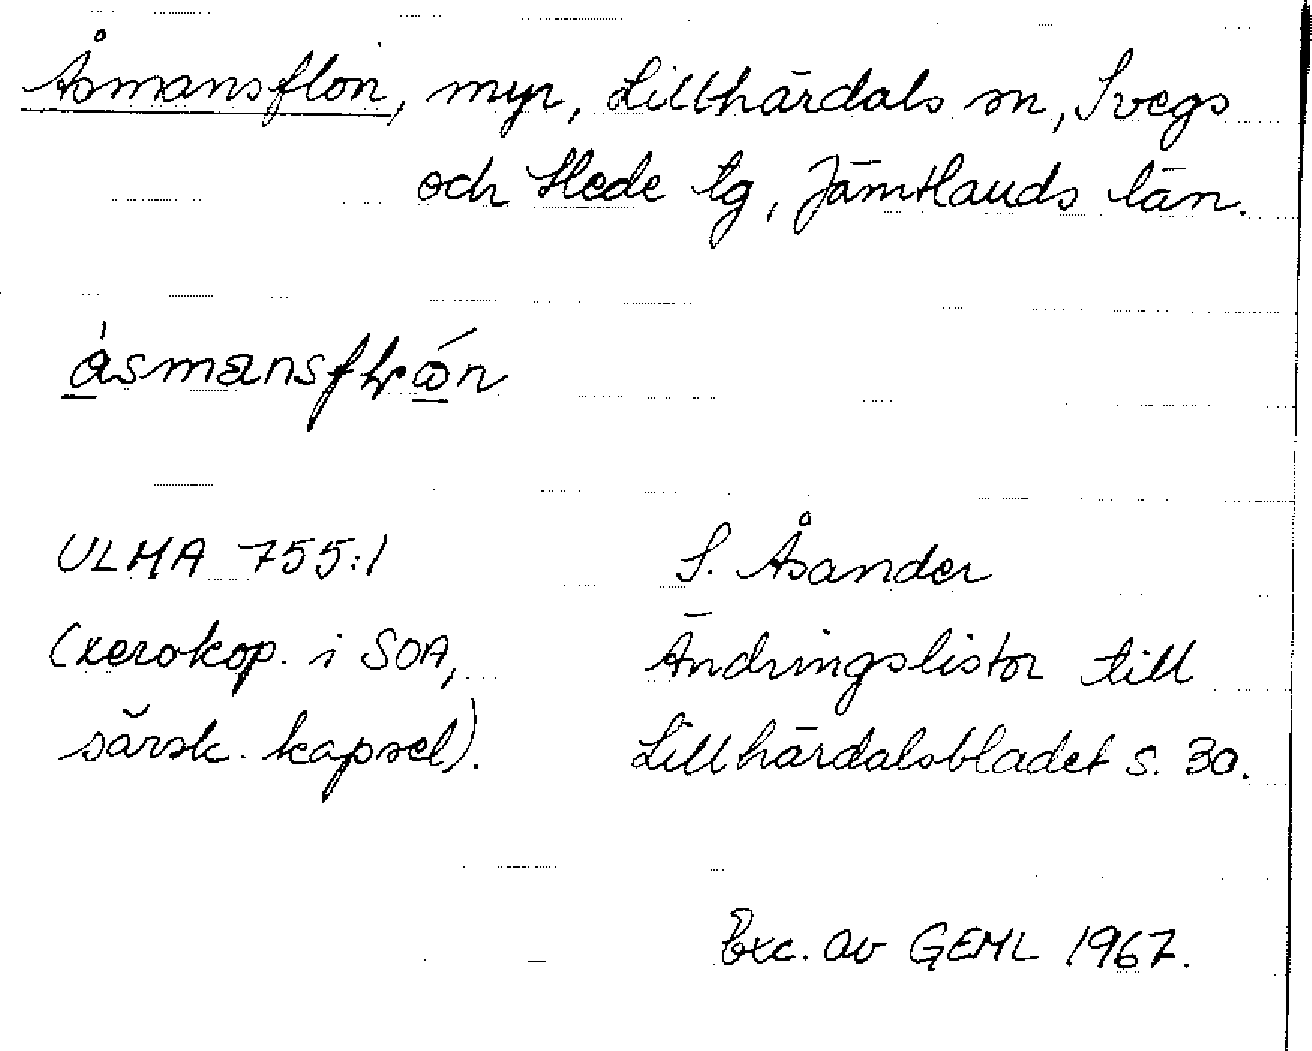 Åsmansflon, myr, Lillhärdals sn, Svegs
och Hede tg, Jämtlands län.
ULMA 755:1
S. Åsander
(xerokop. i SOA,
Ändringslistor till
särsk. kapsel).
Lillhärdalsbladet s. 30.
Exc. av GEML 1967.